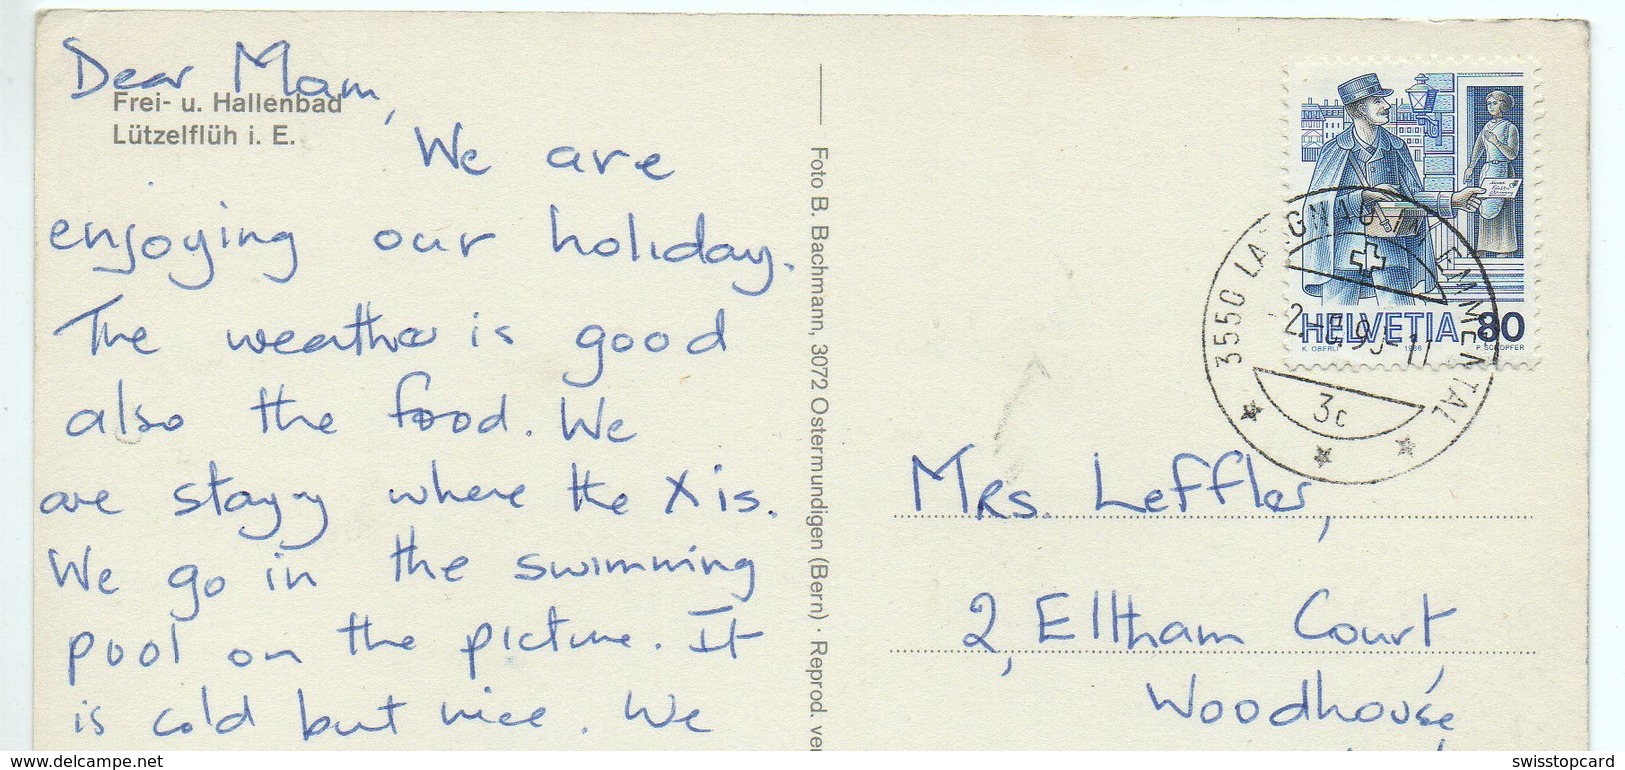 Dear Mam,
Frei- u. Hallenbad
Lützelflüh i. E.
We are
enjoying our holiday.
The weather is good
also the food. We
are stayg where the X is.
We go in the swimming
pool on the picture. It
is cold but nice. We
Foto B. Bachmann, 3072 Ostermundigen (Bern) · Reprod. ver
HELVETIA 80
K. OBERLI 1986 P. SCHOPFER
3550 LANGNAU IM EMMENTAL
3c
Mrs. Leffler,
2, Elltham Court,
Woodhouse
www.delcampe.net
swisstopcard